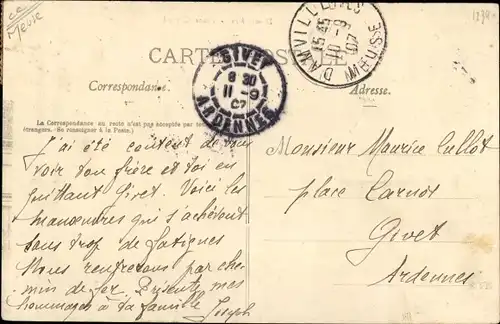 Meuse
CARTE POSTALE
Correspondance.
Adresse.
La Correspondance au recto n'est pas acceptée par tous
étrangers. (Se renseigner à la Poste.)
GIVET
8 30
11-9
07
ARDENNES
DAMVILLERS
15 45
10-9
07
MEUSE
J'ai été content de vous
voir ton frère et toi en
quittant Givet. Voici les
manœuvres qui s'achèvent
sans trop de fatigues
Nous rentrerons par che-
min de fer. Présente mes
hommages à ta famille Joseph
Monsieur Maurice Cullot
place Carnot
Givet
Ardennes